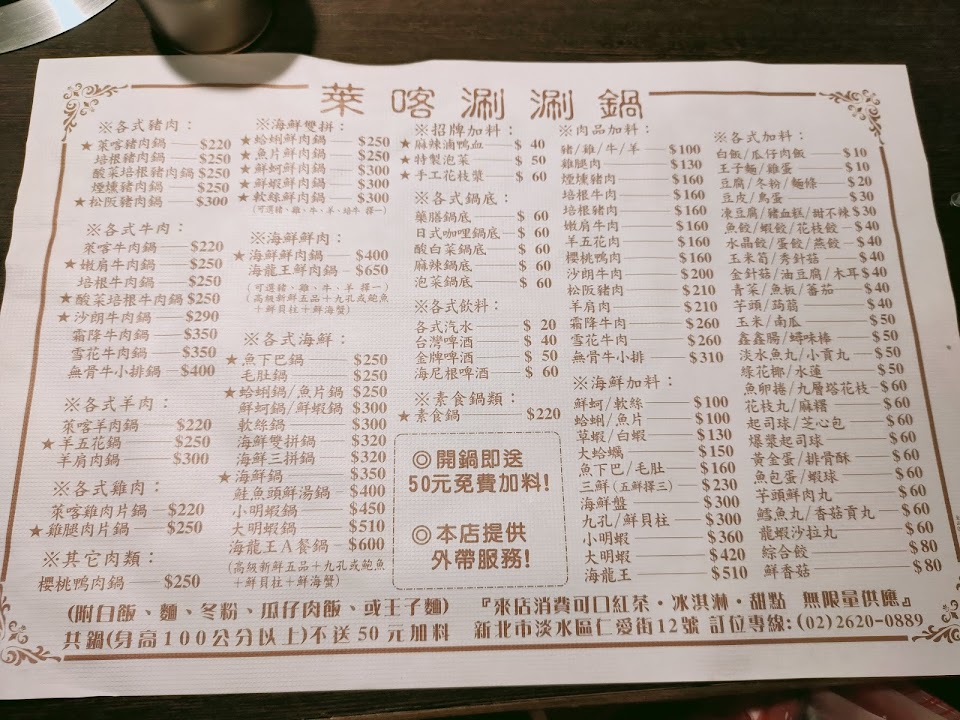 萊喀涮涮鍋
※各式豬肉：
★萊喀豬肉鍋 $220
培根豬肉鍋 $250
酸菜培根豬肉鍋 $250
煙燻豬肉鍋 $250
★松阪豬肉鍋 $300
※各式牛肉：
萊喀牛肉鍋 $220
★嫩肩牛肉鍋 $250
培根牛肉鍋 $250
★酸菜培根牛肉鍋 $250
★沙朗牛肉鍋 $290
霜降牛肉鍋 $350
雪花牛肉鍋 $350
無骨牛小排鍋 $400
※各式羊肉：
萊喀羊肉鍋 $220
★羊五花鍋 $250
羊肩肉鍋 $300
※各式雞肉：
萊喀雞肉片鍋 $220
★雞腿肉片鍋 $250
※其它肉類：
櫻桃鴨肉鍋 $250
※海鮮雙拼：
★蛤蜊鮮肉鍋 $250
★魚片鮮肉鍋 $250
★鮮蚵鮮肉鍋 $300
★鮮蝦鮮肉鍋 $300
★軟絲鮮肉鍋 $300
(可選豬、雞、牛、羊、培牛 擇一)
※海鮮鮮肉：
★海鮮鮮肉鍋 $400
海龍王鮮肉鍋 $650
(可選豬、雞、牛、羊 擇一)
(高級新鮮五品+九孔或鮑魚
+鮮貝柱+鮮海蟹)
※各式海鮮：
★魚下巴鍋 $250
毛肚鍋 $250
★蛤蜊鍋/魚片鍋 $250
鮮蚵鍋/鮮蝦鍋 $300
軟絲鍋 $300
海鮮雙拼鍋 $320
海鮮三拼鍋 $320
★海鮮鍋 $350
鮭魚頭鮮湯鍋 $400
小明蝦鍋 $450
大明蝦鍋 $510
海龍王A餐鍋 $600
(高級新鮮五品+九孔或鮑魚
+鮮貝柱+鮮海蟹)
※招牌加料：
★麻辣滷鴨血 $ 40
★特製泡菜 $ 50
★手工花枝漿 $ 60
※各式鍋底：
藥膳鍋底 $ 60
日式咖哩鍋底 $ 60
酸白菜鍋底 $ 60
麻辣鍋底 $ 60
泡菜鍋底 $ 60
※各式飲料：
各式汽水 $ 20
台灣啤酒 $ 40
金牌啤酒 $ 50
海尼根啤酒 $ 60
※素食鍋類：
★素食鍋 $220
◎開鍋即送
50元免費加料!
◎本店提供
外帶服務!
※肉品加料：
豬/雞/牛/羊 $100
雞腿肉 $130
煙燻豬肉 $160
培根牛肉 $160
培根豬肉 $160
嫩肩牛肉 $160
羊五花肉 $160
櫻桃鴨肉 $160
沙朗牛肉 $200
松阪豬肉 $210
羊肩肉 $210
霜降牛肉 $260
雪花牛肉 $260
無骨牛小排 $310
※海鮮加料：
鮮蚵/軟絲 $100
蛤蜊/魚片 $100
草蝦/白蝦 $130
大蛤蠣 $150
魚下巴/毛肚 $160
三鮮(五鮮擇三) $230
海鮮盤 $300
九孔/鮮貝柱 $300
小明蝦 $360
大明蝦 $420
海龍王 $510
※各式加料：
白飯/瓜仔肉飯 $10
王子麵/雞蛋 $10
豆腐/冬粉/麵條 $20
豆皮/鳥蛋 $30
凍豆腐/豬血糕/甜不辣 $30
魚餃/蝦餃/花枝餃 $40
水晶餃/蛋餃/燕餃 $40
玉米筍/秀針菇 $40
金針菇/油豆腐/木耳 $40
青菜/魚板/蕃茄 $40
芋頭/蒟蒻 $40
玉米/南瓜 $50
鑫鑫腸/蟳味棒 $50
淡水魚丸/小貢丸 $50
綠花椰/水蓮 $50
魚卵捲/九層塔花枝 $60
花枝丸/麻糬 $60
起司球/芝心包 $60
爆漿起司球 $60
黃金蛋/排骨酥 $60
魚包蛋/蝦球 $60
芋頭鮮肉丸 $60
鱈魚丸/香菇貢丸 $60
龍蝦沙拉丸 $60
綜合餃 $80
鮮香菇 $80
(附白飯、麵、冬粉、瓜仔肉飯、或王子麵) 『來店消費可口紅茶・冰淇淋・甜點 無限量供應』
共鍋(身高100公分以上)不送50元加料 新北市淡水區仁愛街12號 訂位專線:(02)2620-0889